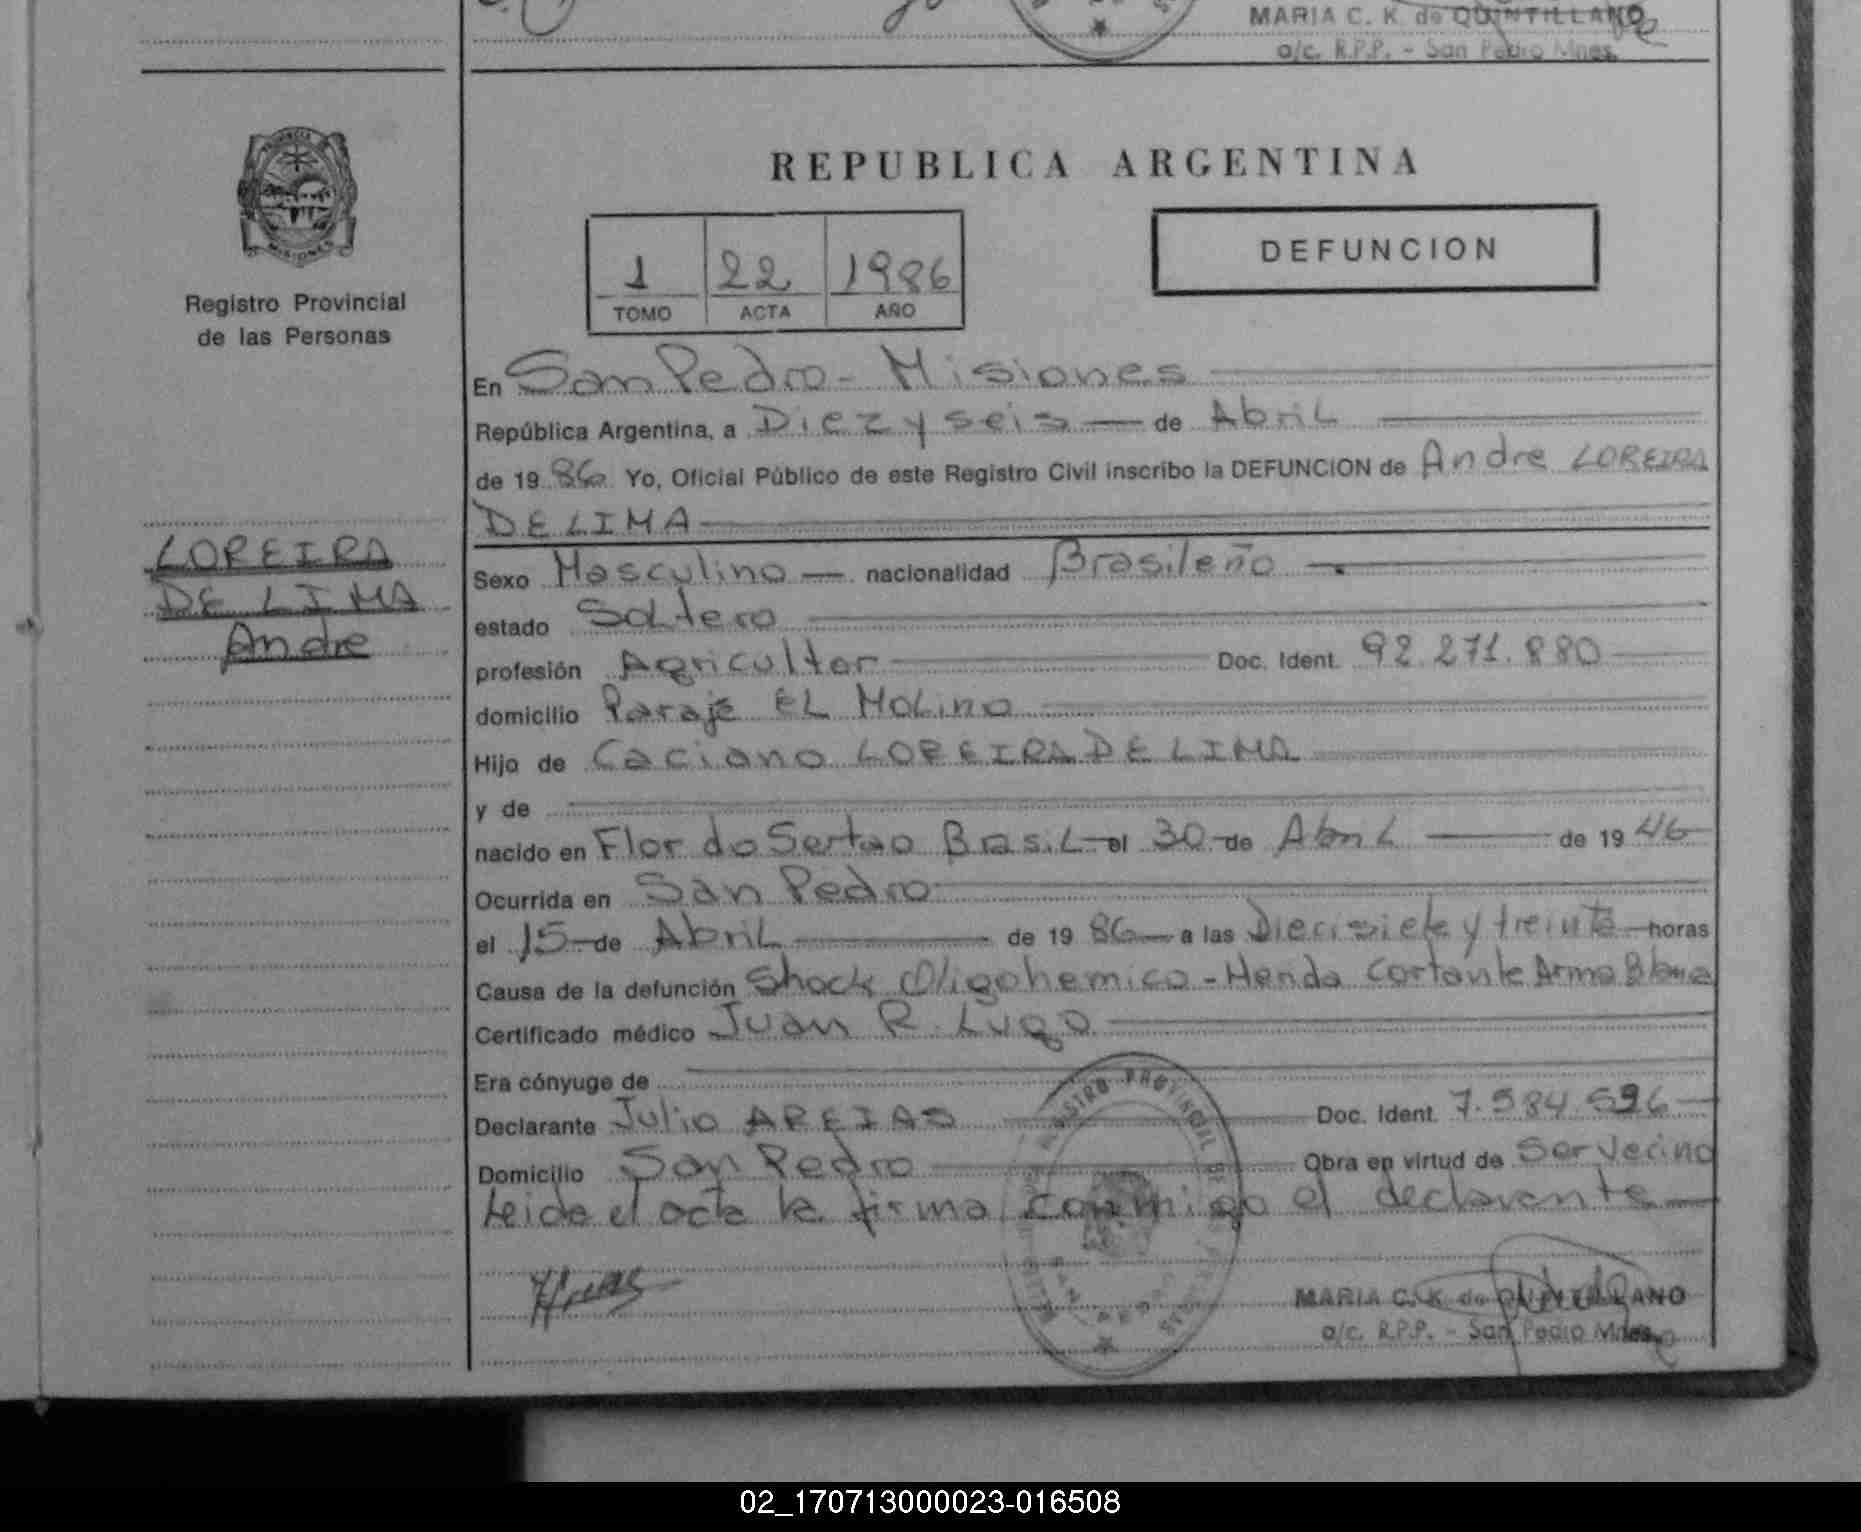 MARIA C. K. de QUINTILLANO
a/c. R.P.P. - San Pedro Mnes.
PROVINCIA
MISIONES
Registro Provincial
de las Personas
REPUBLICA ARGENTINA
1 22 1986
TOMO ACTA AÑO
DEFUNCION
En San Pedro - Misiones
República Argentina, a Diez y seis — de Abril
de 19 86 Yo, Oficial Público de este Registro Civil inscribo la DEFUNCION de Andre LOREIRA
DE LIMA
LOREIRA
DE LIMA
Andre
Sexo Masculino — nacionalidad Brasileño
estado Soltero
profesión Agricultor Doc. Ident. 92.271.880
domicilio Paraje EL Molino
Hijo de Caciano LOREIRA DE LIMA
y de
nacido en Flor do Sertao Brasil el 30 de Abril de 19 46
Ocurrida en San Pedro
el 15 de Abril de 19 86 a las Diecisiete y treinta horas
Causa de la defunción Shock Oligohemico - Herida Cortante Arma Blanca
Certificado médico Juan R. Lugo
Era cónyuge de
Declarante Julio AREIAS Doc. Ident. 7.584.596
Domicilio San Pedro Obra en virtud de Ser Vecino
Leida el acta la firma conmigo el declarante
MARIA C. K. de QUINTILLANO
a/c. R.P.P. - San Pedro Mnes.
02_170713000023-016508